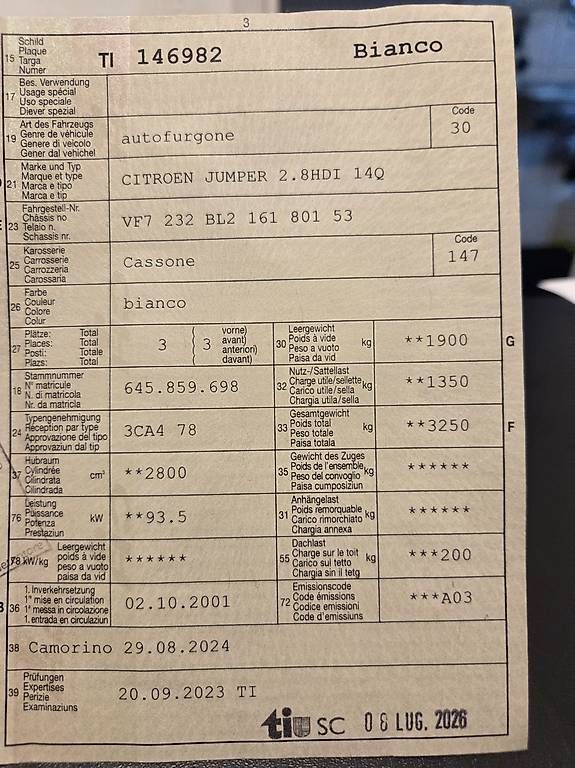 3
15 Schild
Plaque
Targa
Numer
TI 146982 Bianco
17 Bes. Verwendung
Usage spécial
Uso speciale
Diever spezial
19 Art des Fahrzeugs
Genre de véhicule
Genere di veicolo
Gener dal vehichel
autofurgone
Code
30
21 Marke und Typ
Marque et type
Marca e tipo
Marca e tip
CITROEN JUMPER 2.8HDI 14Q
23 Fahrgestell-Nr.
Châssis no
Telaio n.
Schassis nr.
VF7 232 BL2 161 801 53
25 Karosserie
Carrosserie
Carrozzeria
Carossaria
Cassone
Code
147
26 Farbe
Couleur
Colore
Colur
bianco
27 Plätze: Total
Places: Total
Posti: Totale
Plazs: Total
3 ( 3 vorne)
avant)
anteriori)
davant)
30 Leergewicht
Poids à vide
Peso a vuoto
Paisa da vid
kg
**1900
G
18 Stammnummer
N° matricule
N. di matricola
Nr. da matricla
645.859.698
32 Nutz-/Sattellast
Charge utile/sellette
Carico utile/sella
Chargia utila/sella
kg
**1350
24 Typengenehmigung
Réception par type
Approvazione del tipo
Approvaziun dal tip
3CA4 78
33 Gesamtgewicht
Poids total
Peso totale
Paisa totala
kg
**3250
F
37 Hubraum
Cylindrée
Cilindrata
Cilindrada
cm³
**2800
35 Gewicht des Zuges
Poids de l'ensemble
Peso del convoglio
Paisa cumposiziun
kg
******
76 Leistung
Puissance
Potenza
Prestaziun
kW
**93.5
31 Anhängelast
Poids remorquable
Carico rimorchiato
Chargia annexa
kg
******
78 kW/kg Leergewicht
poids à vide
peso a vuoto
paisa da vid
******
55 Dachlast
Charge sur le toit
Carico sul tetto
Chargia sin il tetg
kg
***200
36 1. Inverkehrsetzung
1re mise en circulation
1a messa in circolazione
1. entrada en circulaziun
02.10.2001
72 Emissionscode
Code émissions
Codice emissioni
Code d'emissiuns
***A03
38 Camorino 29.08.2024
39 Prüfungen
Expertises
Perizie
Examinaziuns
20.09.2023 TI
ti SC 08 LUG. 2026